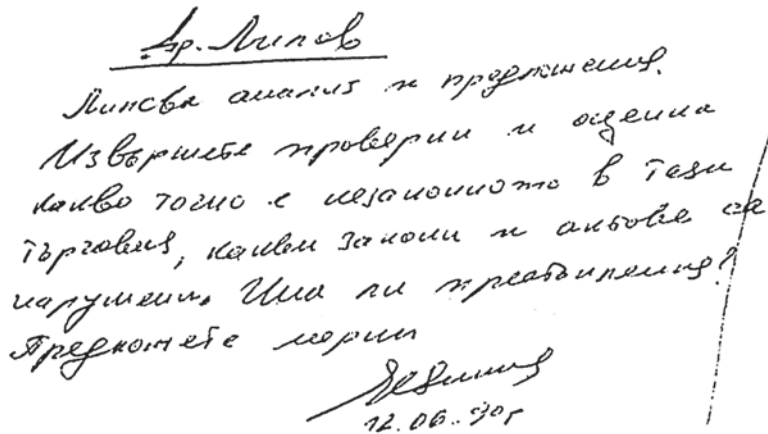 др. Липов
Липсва анализ и предложения.
Извършете проверки и оценка
какво точно е незаконното в тази
търговия, какви закони и актове са
нарушени. Има ли престъпления?
Предложете мерки
12.06.90г